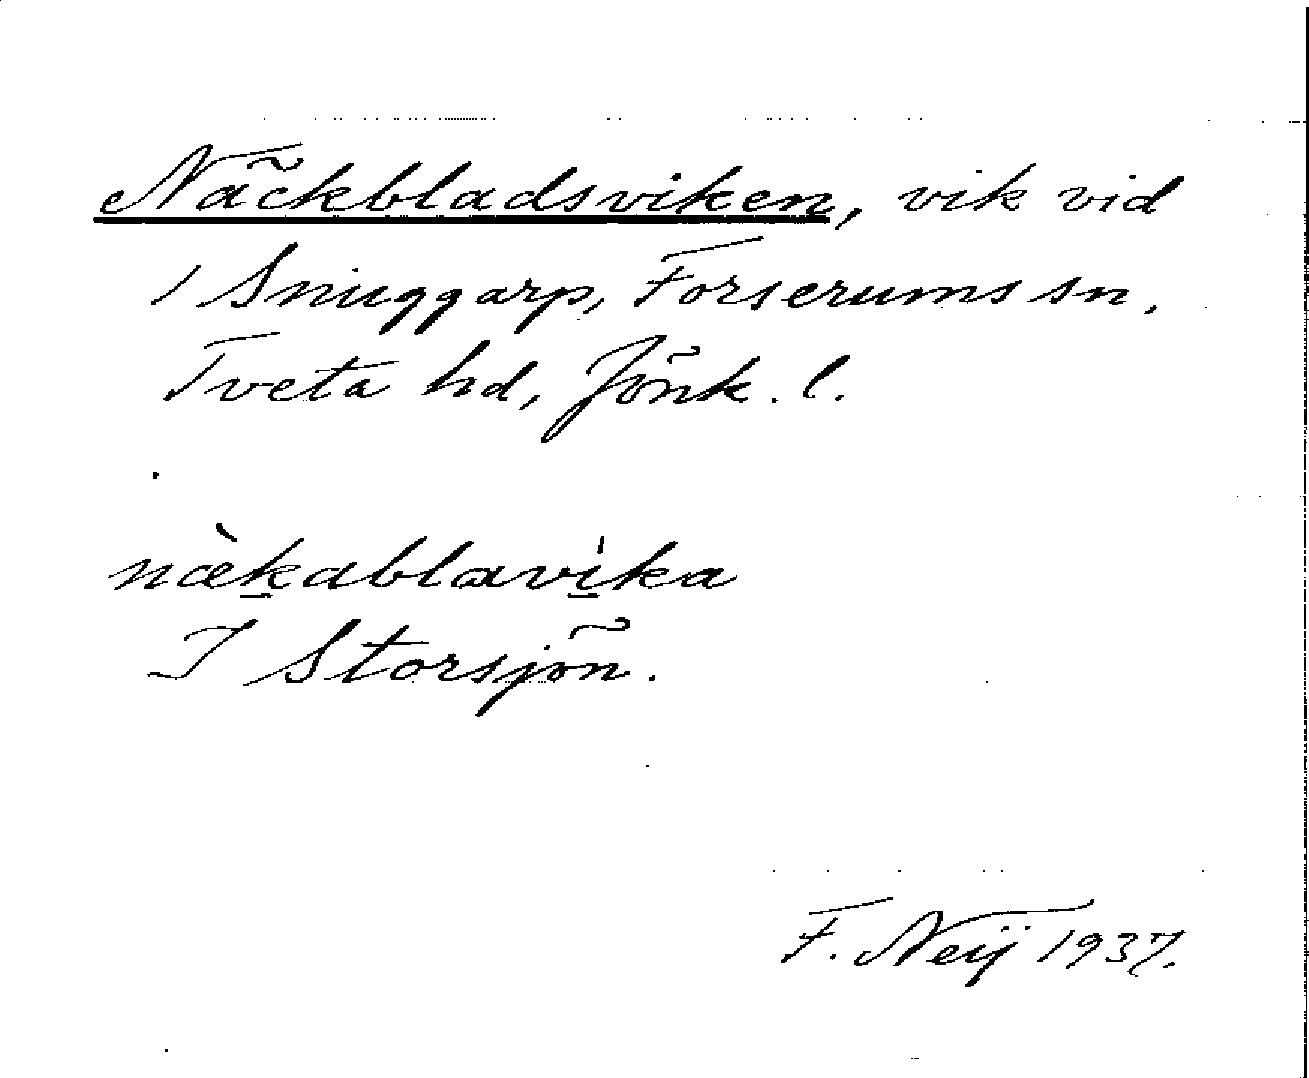 Näckbladsviken, vik vid
/ Snuggarp, Forserums sn,
Tveta hd, Jönk. l.
næ̀k̲ablavi̲̍ka
I Storsjön.
F. Neij 1937.